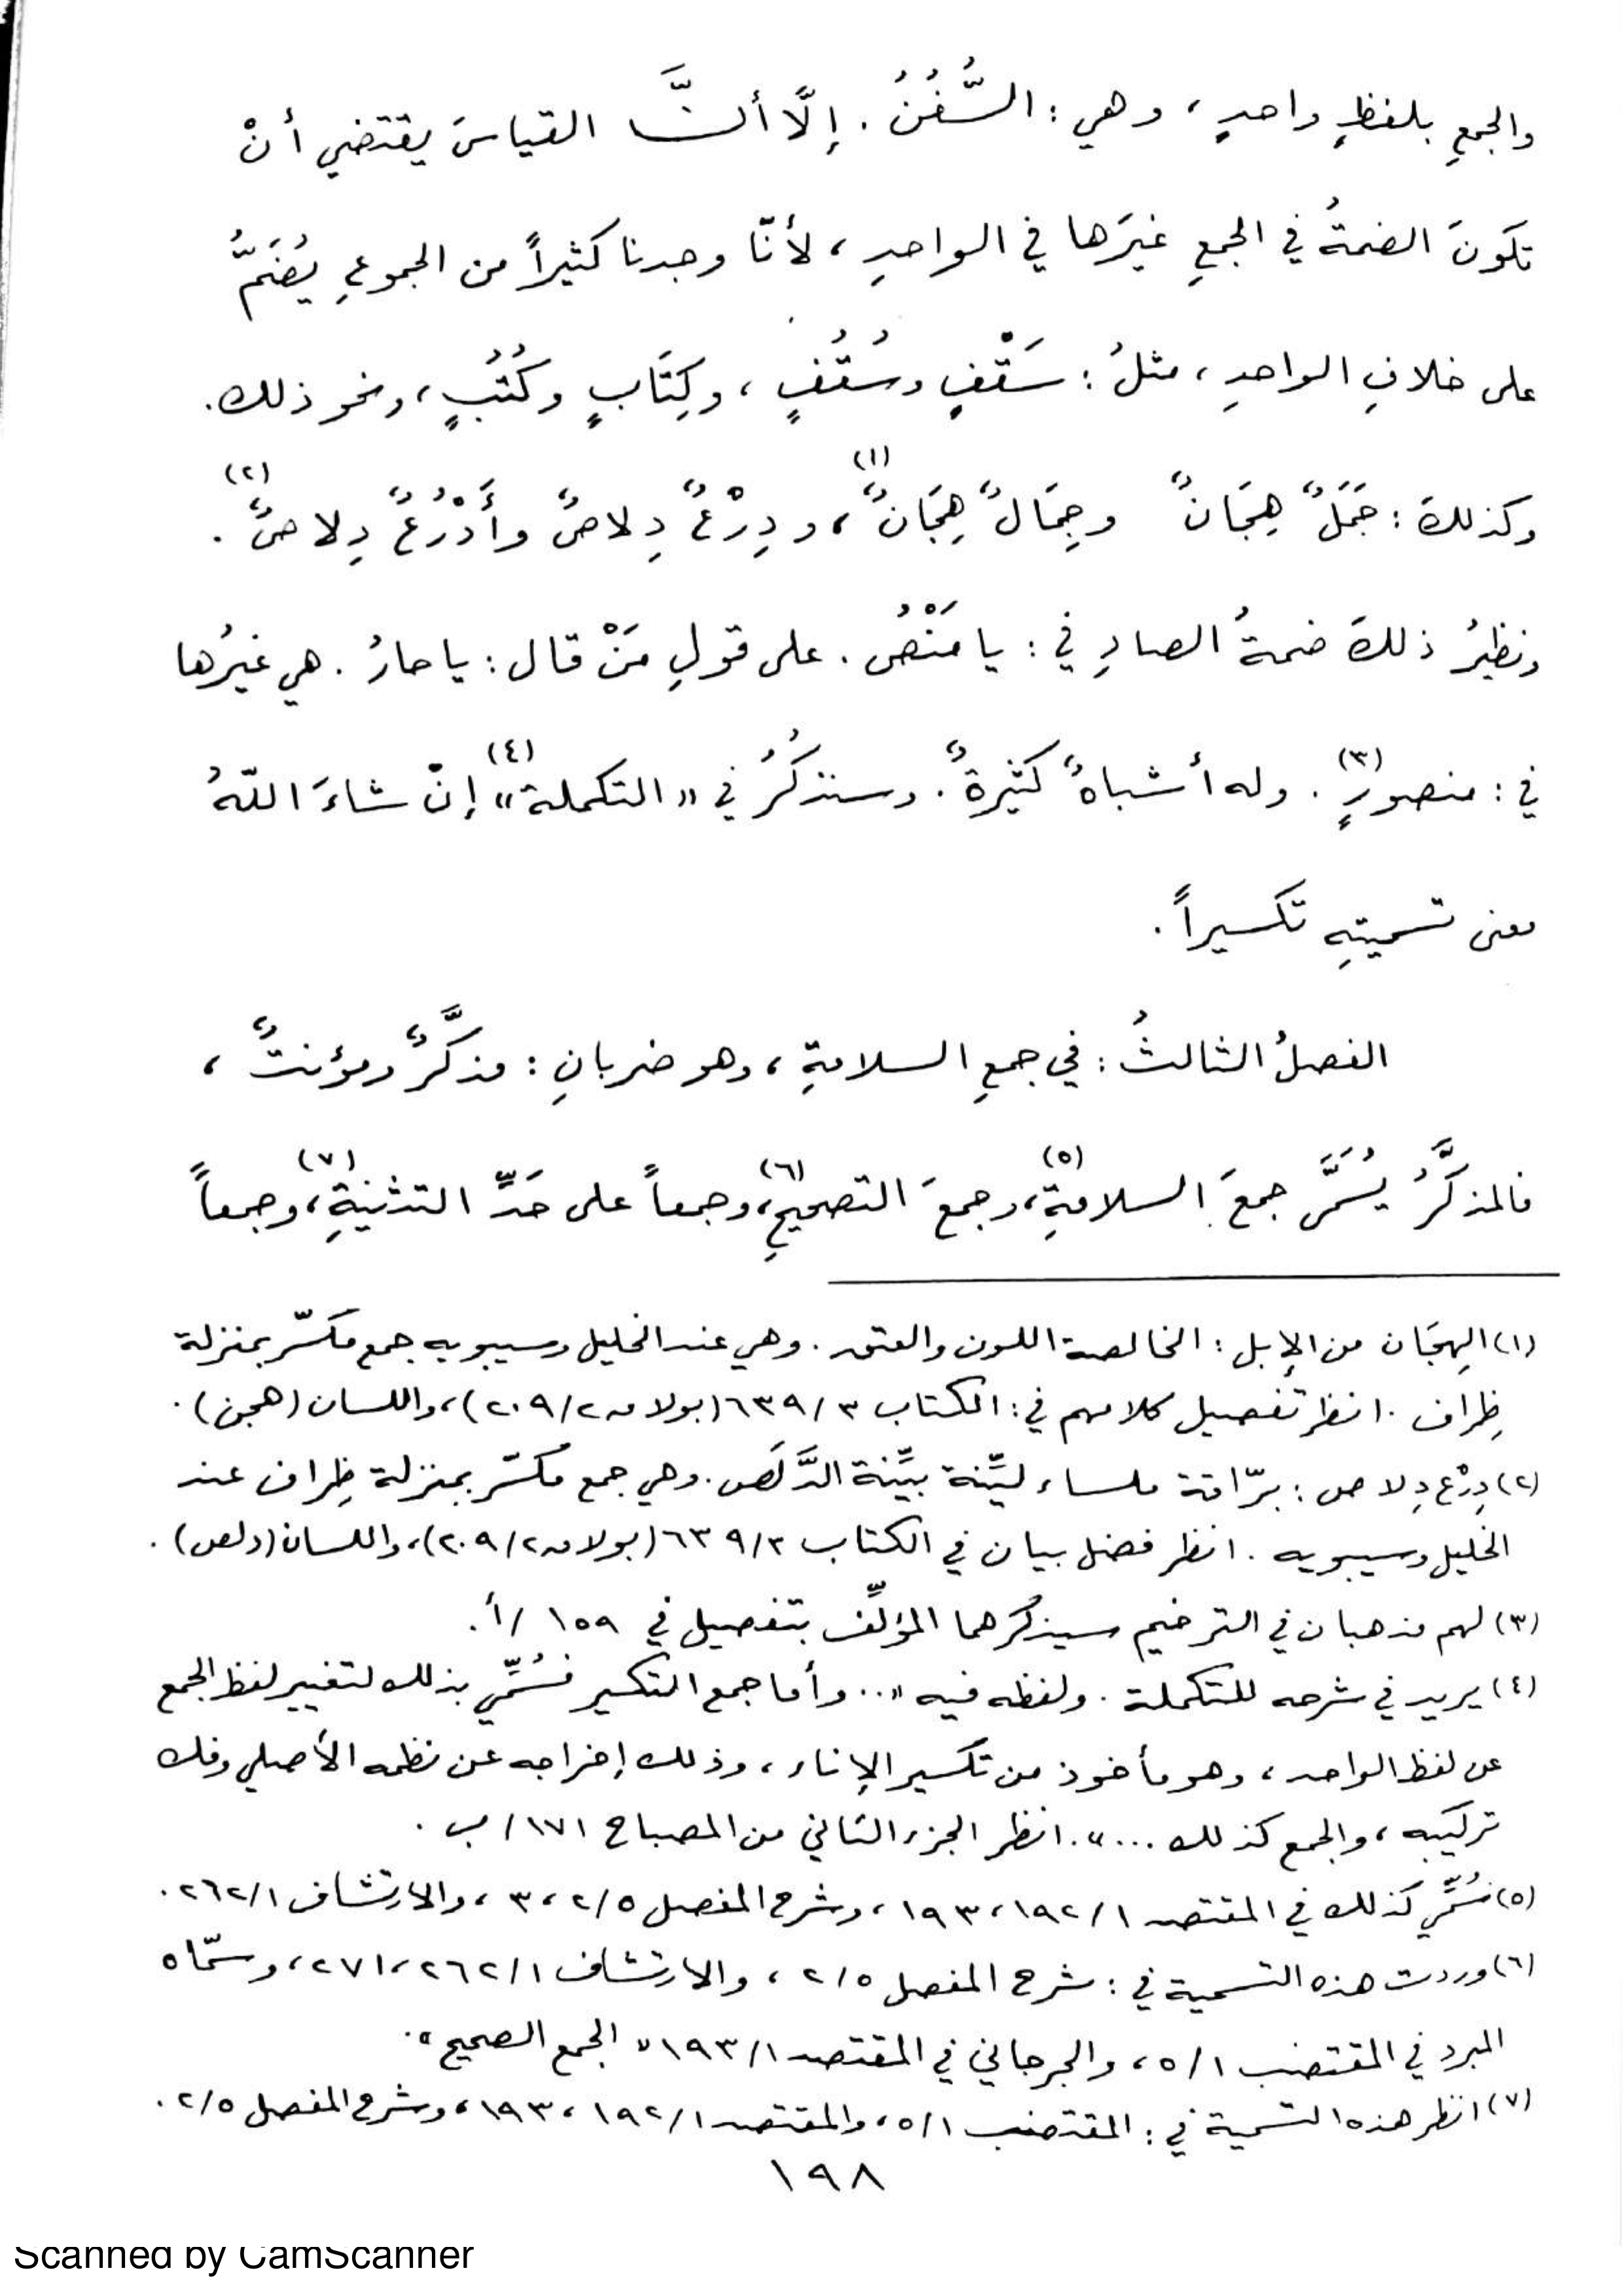 والجمعِ بلفظٍ واحدٍ، وهي: السُّفُنُ. إلَّا أنَّ القياسَ يقتضي أنْ
تكونَ الضمةُ في الجمعِ غيرَها في الواحدِ، لأنّا وجدنا كثيراً من الجموعِ يُضَمُّ
على خلافِ الواحدِ، مثلُ: سَقْفٍ وسُقُفٍ، وكِتَابٍ وكُتُبٍ، ونحو ذلك.
وكذلكَ: جَمَلٌ هِجَانٌ وجِمَالٌ هِجَانٌ(١)، ودِرْعٌ دِلاصٌ وأَدْرُعٌ دِلاصٌ(٢).
ونظيرُ ذلكَ ضمةُ الصادِ في: يا مَنْصُ. على قولِ مَنْ قال: يا حارُ. هي غيرُها
في: منصورٍ(٣). وله أشباهٌ كثيرةٌ. وسنذكُرُ في «التكملة»(٤) إنْ شاءَ اللّهُ
معنى تسميتِهِ تكسيراً.
الفصلُ الثالثُ: في جمعِ السلامةِ، وهو ضربانِ: مذكَّرٌ ومؤنثٌ،
فالمذكَّرُ يُسَمَّى جمعَ السلامةِ(٥)، وجمعَ التصحيحِ(٦)، وجمعاً على حَدِّ التثنيةِ(٧)، وجمعاً
(١) الهِجَان من الإبل: الخالصة اللون والعتق. وهي عند الخليل وسيبويه جمع مكسّر بمنزلة
ظِراف. انظر تفصيل كلامهم في: الكتاب ٣/ ٦٣٩ (بولاق ٢/ ٢٠٩)، واللسان (هجن).
(٢) دِرْع دِلاص: برّاقة ملساء ليِّنة بيِّنة الدَّلَص. وهي جمع مكسّر بمنزلة ظِراف عند
الخليل وسيبويه. انظر فضل بيان في الكتاب ٣/ ٦٣٩ (بولاق ٢/ ٢٠٩)، واللسان (دلص).
(٣) لهم مذهبان في الترخيم سيذكرهما المؤلِّف بتفصيل في ١٥٩ /أ.
(٤) يريد في شرحه للتكملة. ولفظه فيه «.. وأما جمع التكسير فسُمِّي بذلك لتغيير لفظ الجمع
عن لفظ الواحد، وهو مأخوذ من تكسير الإناء، وذلك إخراجه عن نظمه الأصلي وفك
تركيبه، والجمع كذلك ...». انظر الجزء الثاني من المصباح ١٧١/ ب.
(٥) سُمِّي كذلك في المقتصد ١/ ١٩٢، ١٩٣، وشرح المفصل ٥/ ٢، ٣، والارتشاف ١/ ٢٦٢.
(٦) وردت هذه التسمية في: شرح المفصل ٥/ ٢، والارتشاف ١/ ٢٦٢، ٢٧١، وسمّاه
المبرد في المقتضب ١/ ٥، والجرجاني في المقتصد ١/ ١٩٣ «الجمع الصحيح».
(٧) انظر هذه التسمية في: المقتضب ١/ ٥، والمقتصد ١/ ١٩٢، ١٩٣، وشرح المفصل ٥/ ٢.
١٩٨
Scanned by CamScanner